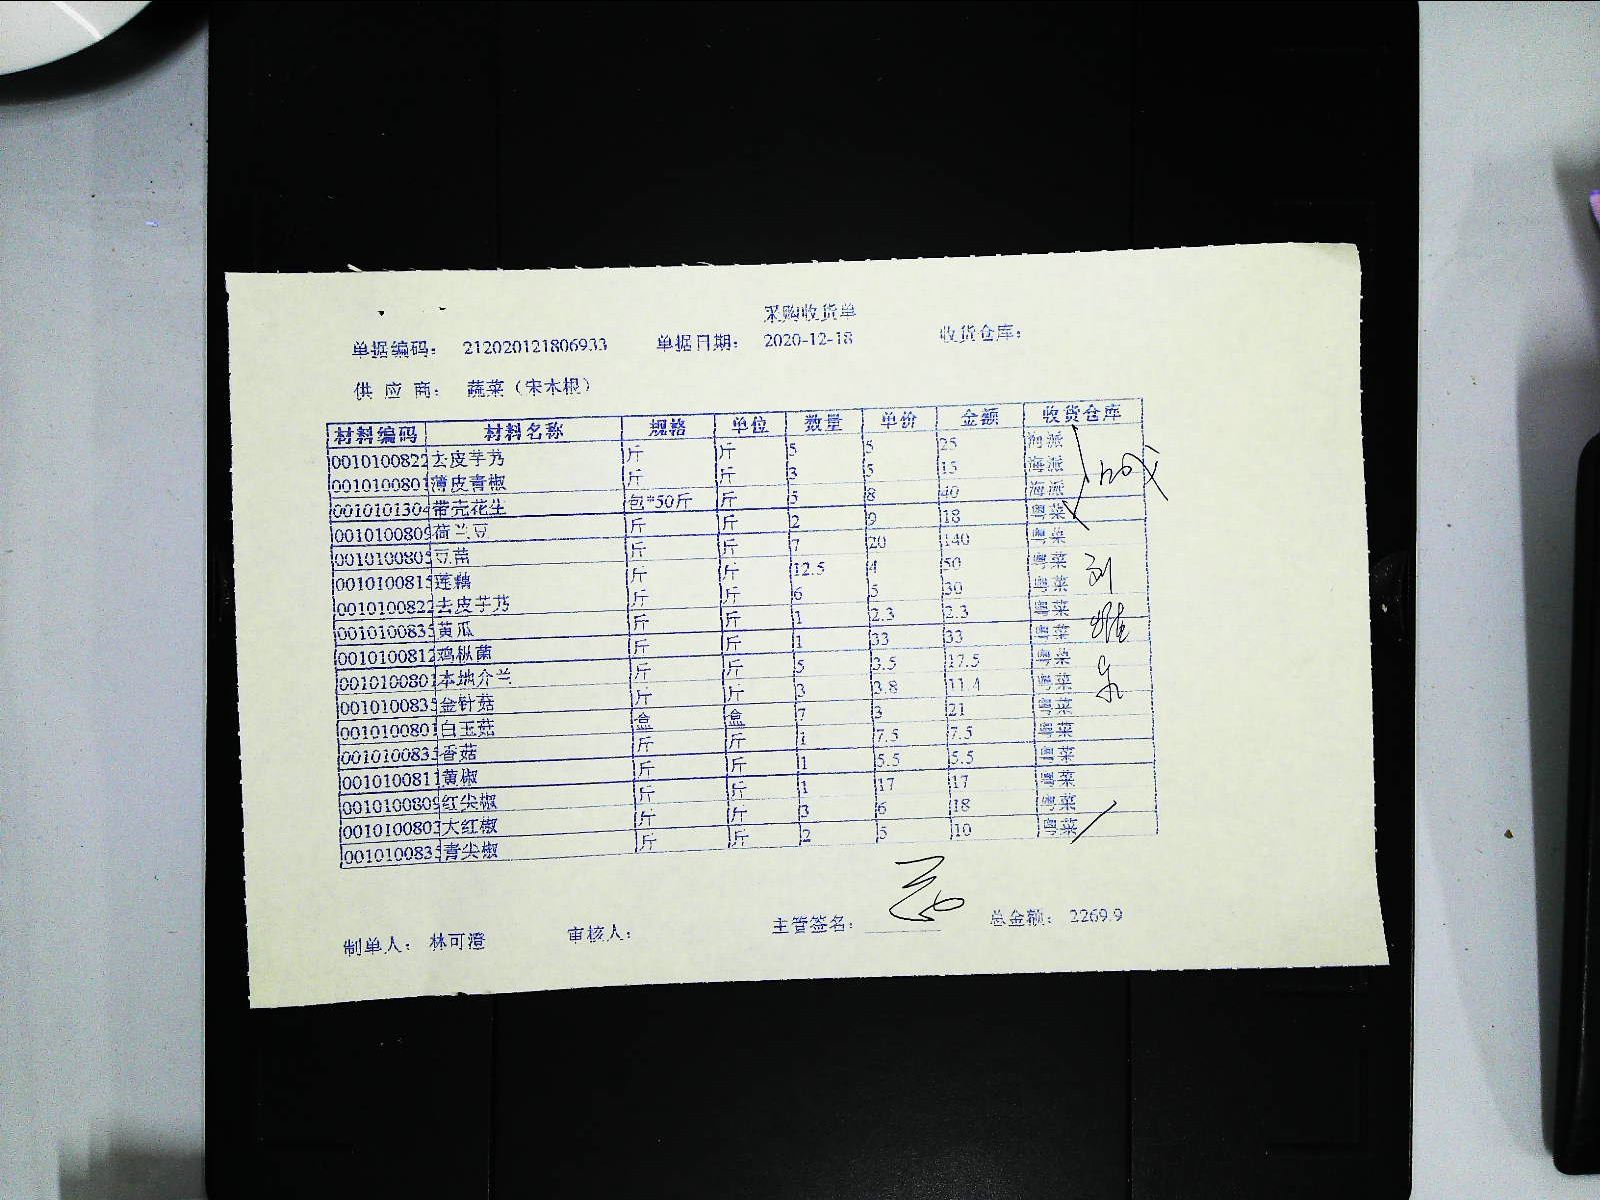 采购收货单
单据编码： 212020121806933 单据日期： 2020-12-18 收货仓库：
供 应 商： 蔬菜（宋木根）
材料编码 材料名称 规格 单位 数量 单价 金额 收货仓库
0010100822 去皮芋艿 斤 斤 5 5 25 海派
0010100801 薄皮青椒 斤 斤 3 5 15 海派
0010101304 带壳花生 包*50斤 斤 5 8 40 海派
0010100809 荷兰豆 斤 斤 2 9 18 粤菜
0010100805 豆苗 斤 斤 7 20 140 粤菜
0010100815 莲藕 斤 斤 12.5 4 50 粤菜
0010100822 去皮芋艿 斤 斤 6 5 30 粤菜
0010100835 黄瓜 斤 斤 1 2.3 2.3 粤菜
0010100812 鸡枞菌 斤 斤 1 33 33 粤菜
0010100801 本地介兰 斤 斤 5 3.5 17.5 粤菜
0010100835 金针菇 斤 斤 3 3.8 11.4 粤菜
0010100801 白玉菇 盒 盒 7 3 21 粤菜
0010100835 香菇 斤 斤 1 7.5 7.5 粤菜
0010100811 黄椒 斤 斤 1 5.5 5.5 粤菜
0010100809 红尖椒 斤 斤 1 17 17 粤菜
0010100803 大红椒 斤 斤 3 6 18 粤菜
0010100835 青尖椒 斤 斤 2 5 10 粤菜
制单人： 林可澄 审核人： 主管签名： 总金额： 2269.9